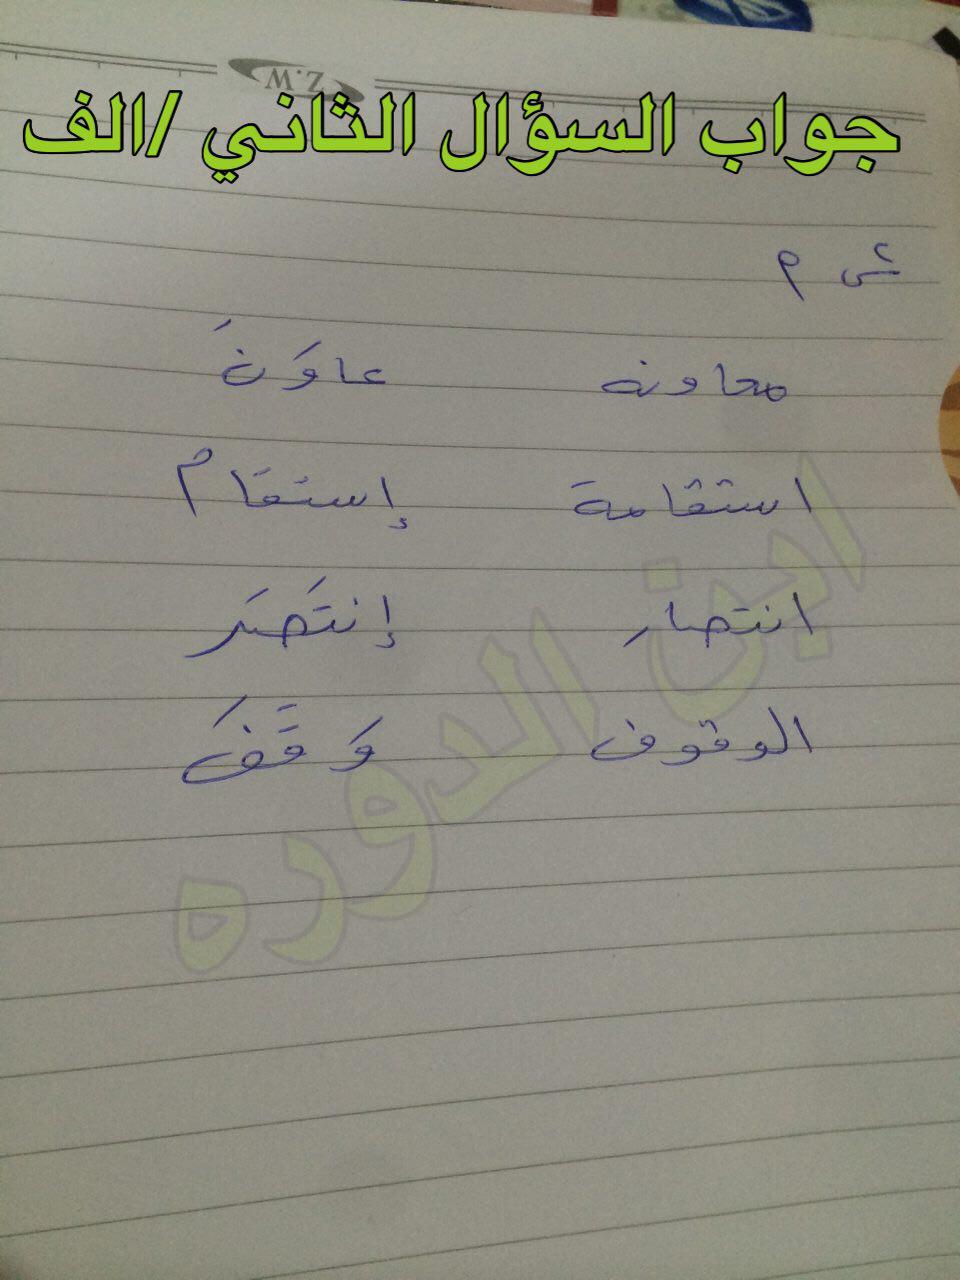 Z.W
جواب السؤال الثاني /الف
معاونه عاوَنَ
استقامة إستقَامَ
انتصار إنتَصَرَ
الوقوف وَقَفَ
ابن الدوره